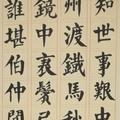 知世事艱中
州渡鐵馬秋
鏡中衰鬢已
誰堪伯仲間